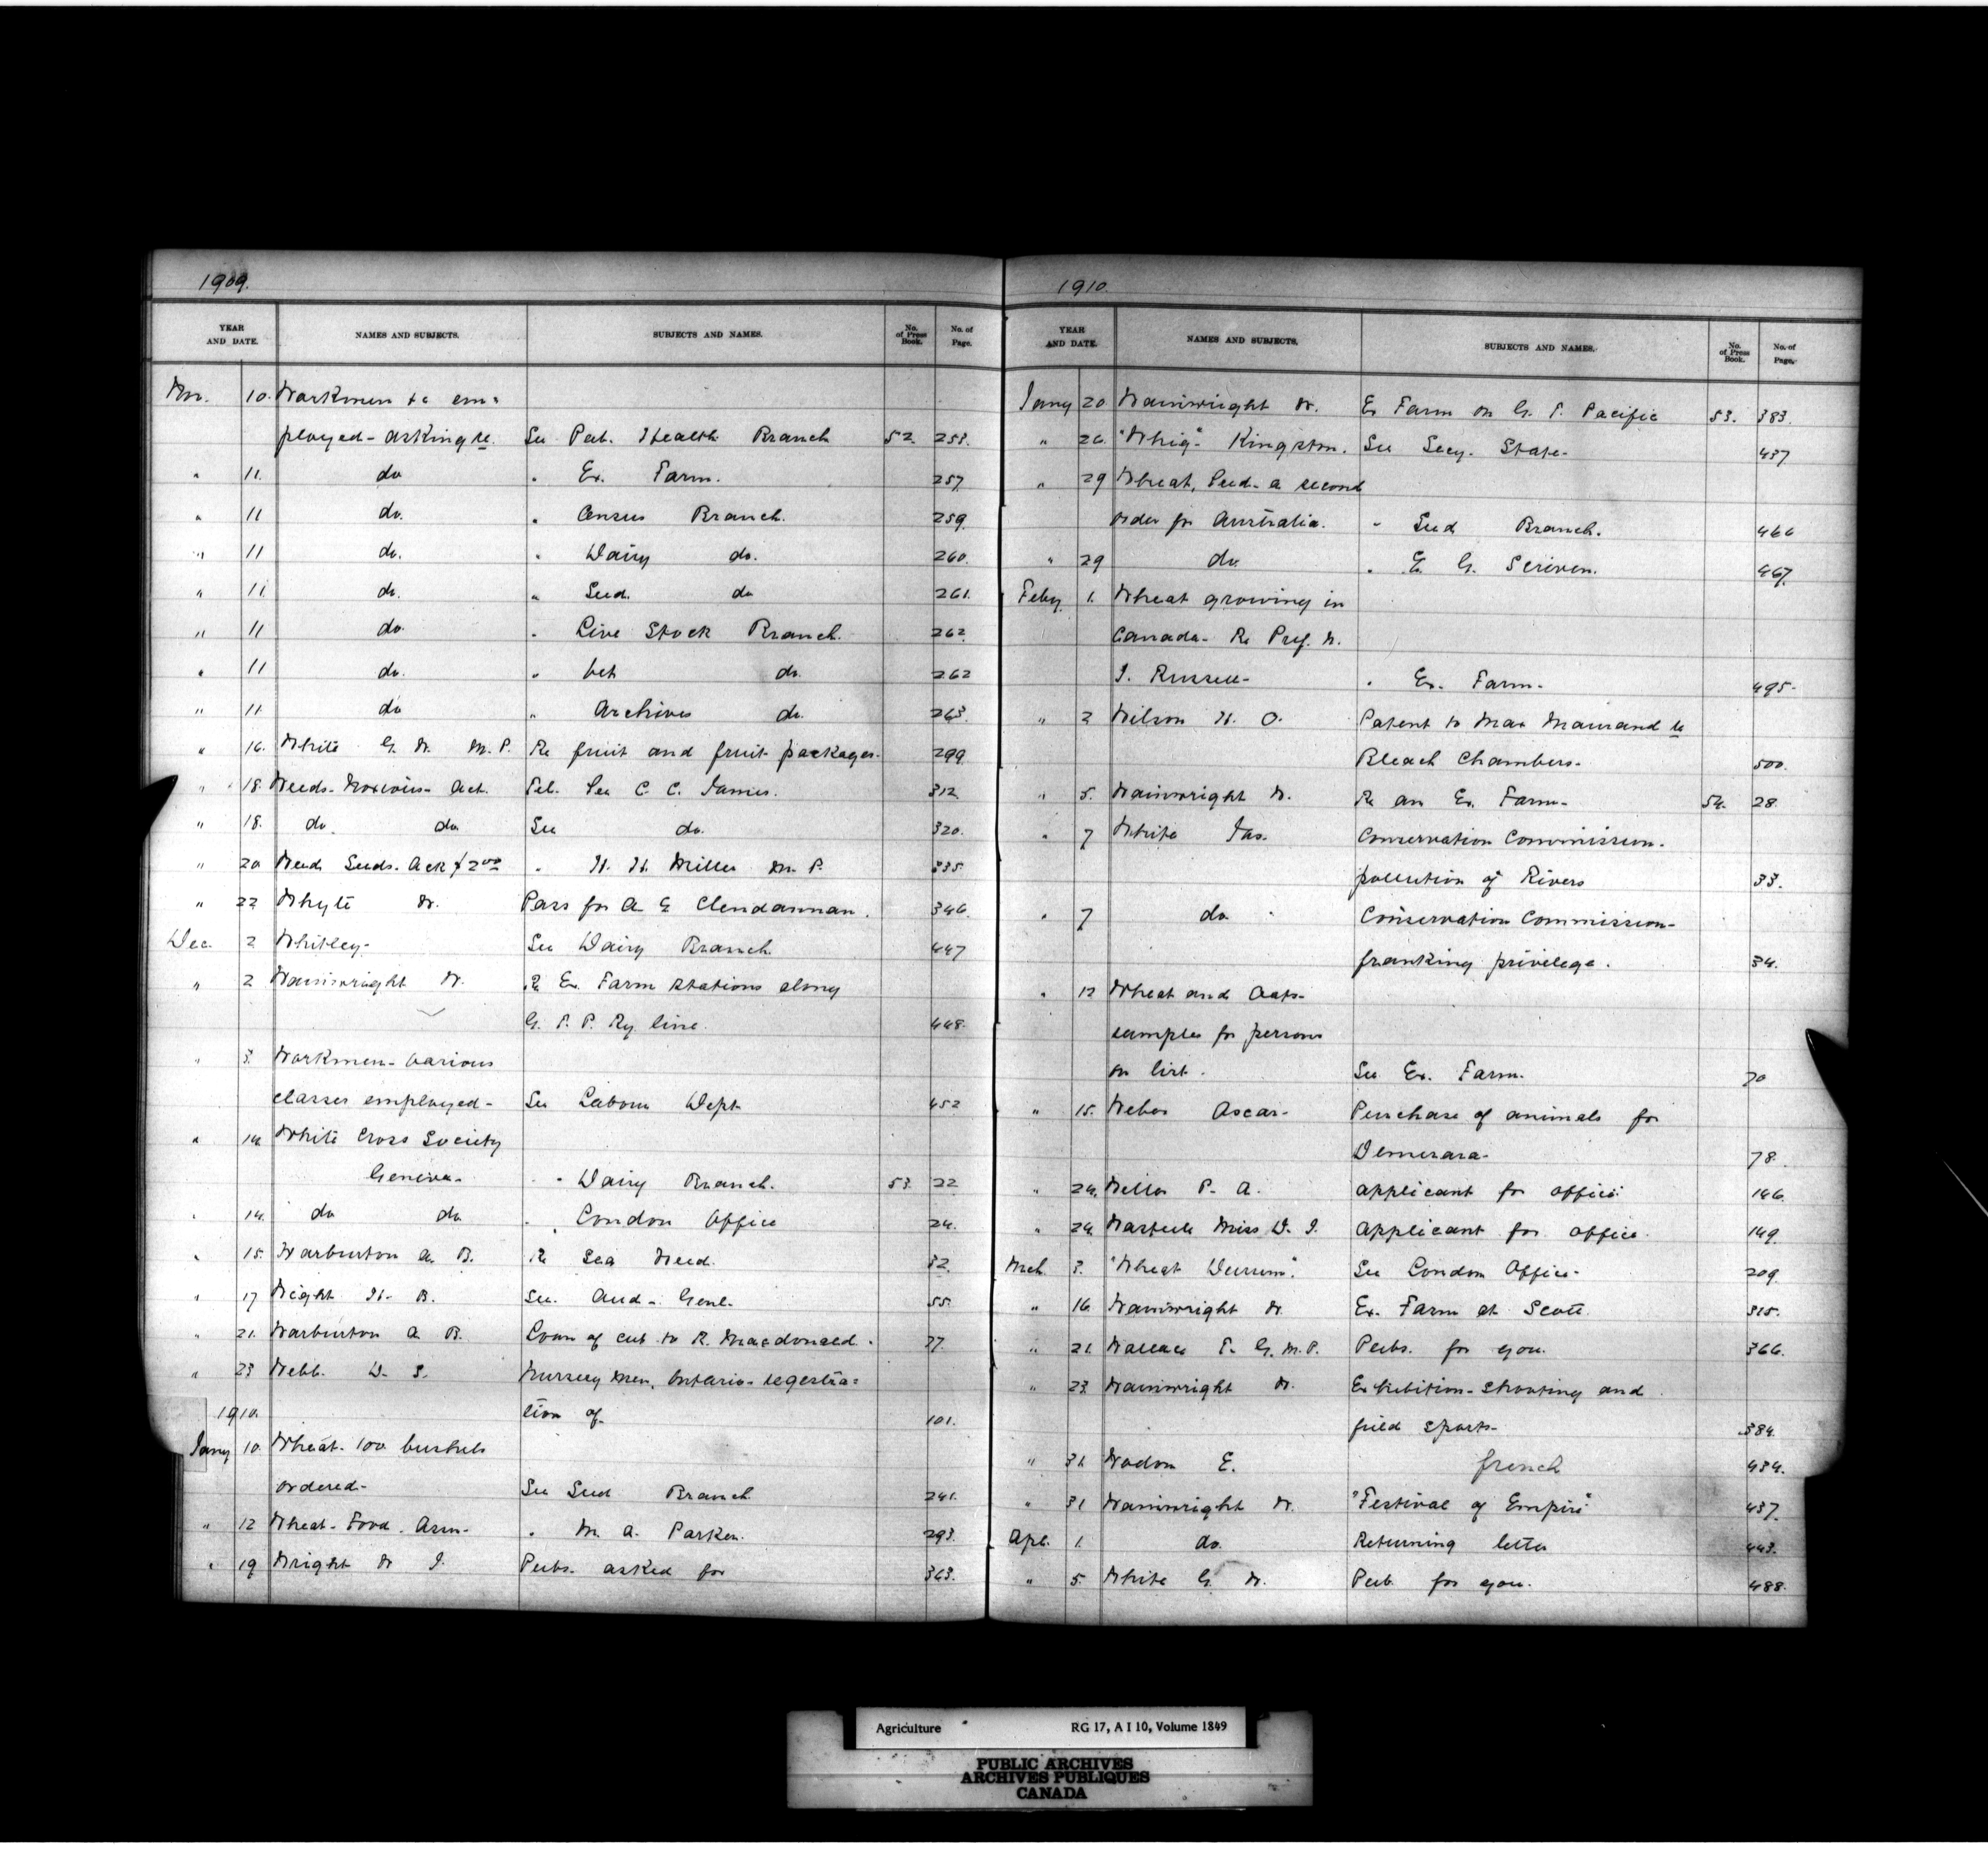 1909.
YEAR AND DATE. NAMES AND SUBJECTS. SUBJECTS AND NAMES. No. of Press Book. No. of Page.
Nov. 10. Workmen &c em=
ployed - asking re. See Pat. Health Branch 52. 253.
" 11. do " Ex. Farm. 257.
" 11 do. " Census Branch. 259.
" 11 do. " Dairy do. 260.
" 11 do. " Seed. do 261.
" 11 do. " Live Stock Branch. 262.
" 11 do. " Vet do. 262
" 11 do " Archives do. 263.
" 16. White G. W. M.P. Re fruit and fruit packages. 299.
" 18. Weeds - Noxious - Act. Tel. See C. C. James. 312.
" 18. do do See do. 320.
" 20 Weed Seeds. Ack $2.00 " H. H. Miller M. P. 335.
" 22 Whyte W. Pass for A. E. Clendannan. 346.
Dec. 2 Whitley - See Dairy Branch. 447
" 2 Wainwright W. Re Ex. Farm stations along
G. T. P. Ry line. 448.
" 3. Workmen - various
classes employed - See Labour Dept 452
" 14. White Cross Society
Geneva - " Dairy Branch. 53. 22
" 14. do do " London Office 24.
" 15. Warburton A. B. Re Sea Weed. 32.
" 17 Wright H. B. See. Aud. Genl. 55.
" 21. Warburton A. B. Loan of cut to R. Macdonald. 77.
" 23 Webb. D. S. Nursery men, Ontario - registra=
1910. tion of 101.
Jany 10. Wheat - 100 bushels
ordered - See Seed Branch 241.
" 12 Wheat - Food. Asm - " M. A. Parker. 293.
" 19 Wright W J. Pubs. asked for 363.
1910
YEAR AND DATE. NAMES AND SUBJECTS. SUBJECTS AND NAMES. No. of Press Book. No. of Page.
Jany 20 Wainwright W. Ex Farm on G. T. Pacific 53. 383.
" 26 "Whig" Kingston. See Secy. State - 437
" 29 Wheat, Seed - a second
order for Australia. " Seed Branch. 466
" 29 do " E. G. Scriven. 467.
Feby. 1. Wheat growing in
Canada - Re Prof. W.
J. Russell - " Ex. Farm - 495 -
" 2 Wilson H. O. Patent to Max Maurand re
Bleach Chambers - 500.
" 5. Wainwright W. Re an Ex. Farm - 54. 28.
" 7 White Jas. Conservation Commission.
pollution of Rivers 33.
" 7 do Conservation Commission -
franking privilege. 34.
" 12 Wheat and Oats -
samples for persons
on list. See Ex. Farm. 70
" 15. Weber Oscar - Purchase of animals for
Demerara - 78.
" 24. Weller P. A. Applicant for office. 146.
" 24. Miss D. J. Applicant for office. 149.
Mch. 3. "Wheat Durum". See London Office - 209.
" 16. Wainwright W. Ex. Farm at Scott. 315.
" 21. Wallace T. G. M.P. Pubs. for you. 366.
" 23. Wainwright W. Exhibition - shooting and
field sports - 384.
" 31. Wodon E. french 434.
" 31 Wainwright W. "Festival of Empire" 437.
Apl. 1. do. Returning letter 443.
" 5. White G. W. Pub. for you. 488.
Agriculture RG 17, A I 10, Volume 1849
PUBLIC ARCHIVES
ARCHIVES PUBLIQUES
CANADA